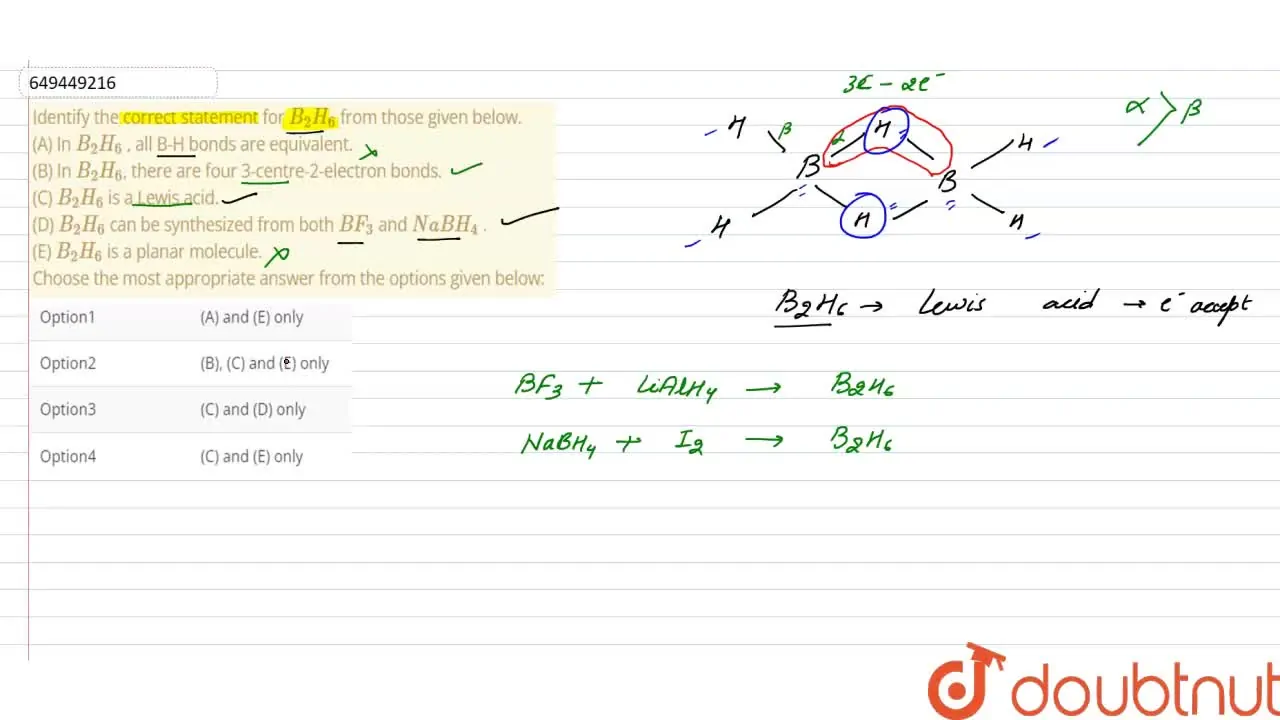 649449216
Identify the correct statement for B₂H₆ from those given below.
(A) In B₂H₆ , all B-H bonds are equivalent.
(B) In B₂H₆, there are four 3-centre-2-electron bonds.
(C) B₂H₆ is a Lewis acid.
(D) B₂H₆ can be synthesized from both BF₃ and NaBH₄ .
(E) B₂H₆ is a planar molecule.
Choose the most appropriate answer from the options given below:
Option1 (A) and (E) only
Option2 (B), (C) and (E) only
Option3 (C) and (D) only
Option4 (C) and (E) only
3C - 2e⁻
H β α H H
B B
H H H
α > β
B₂H₆ → Lewis acid → e⁻ accept
BF₃ + LiAlH₄ → B₂H₆
NaBH₄ + I₂ → B₂H₆
doubtnut